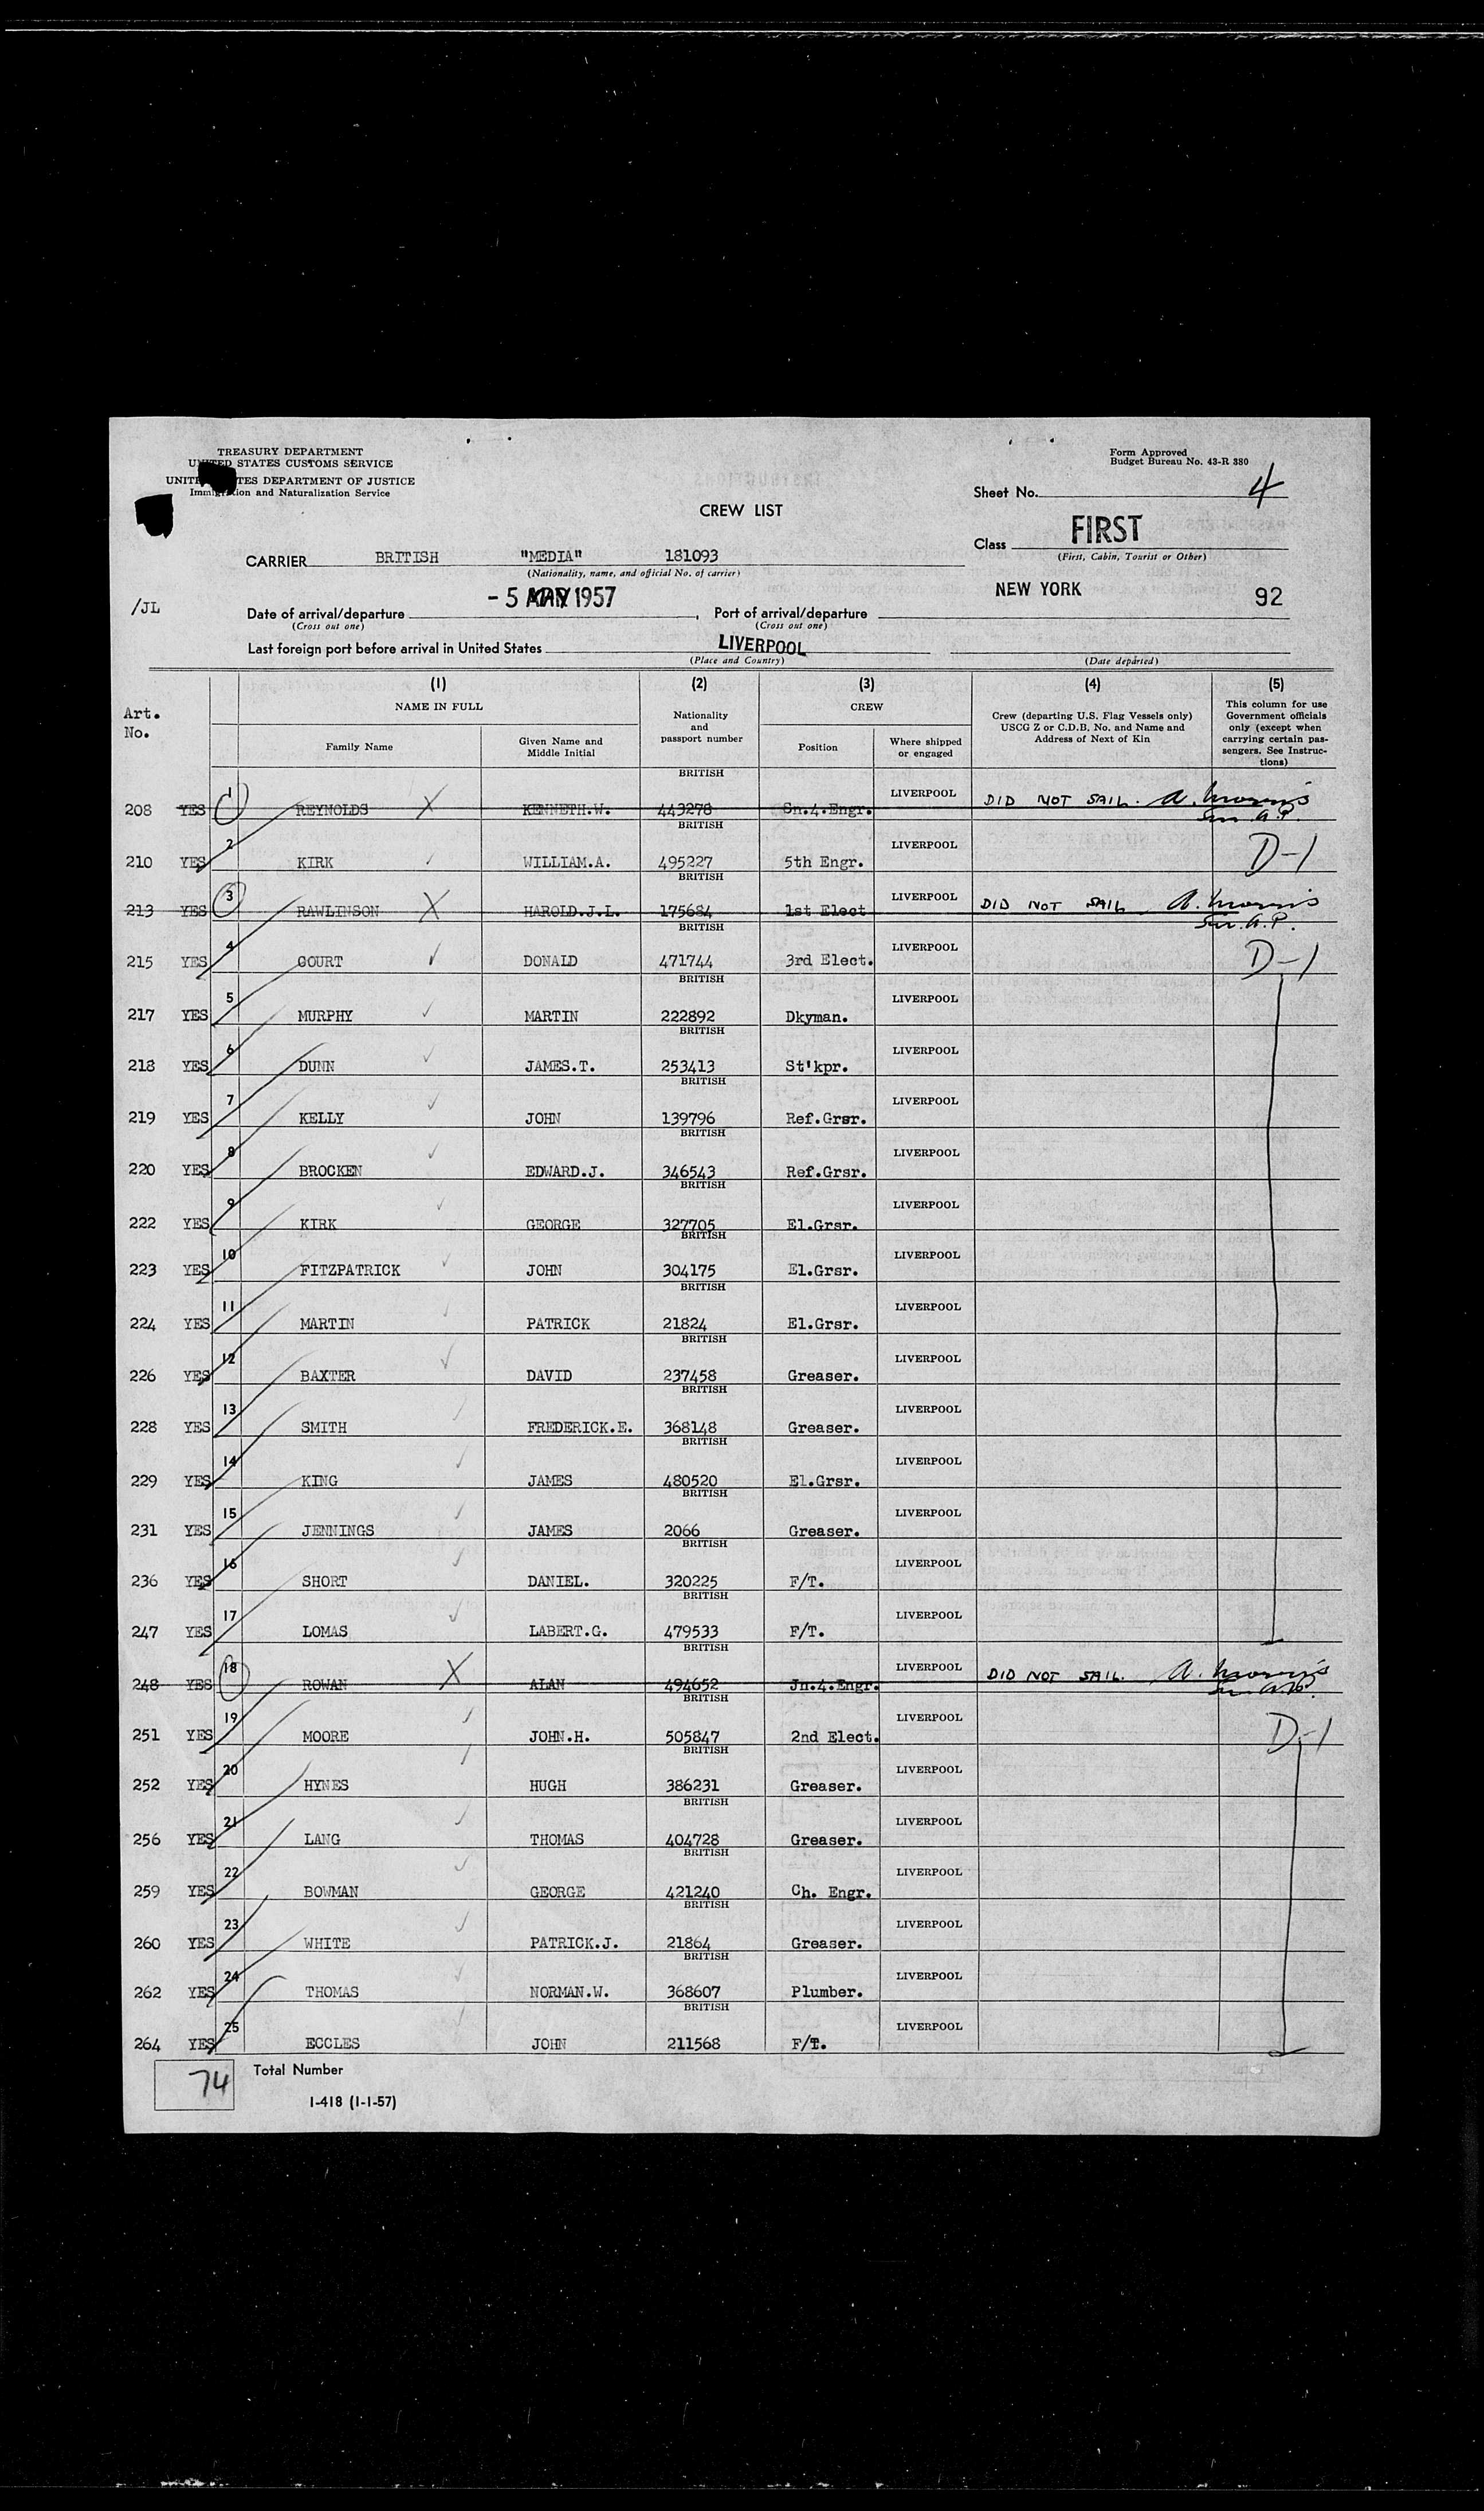 TREASURY DEPARTMENT
UNITED STATES CUSTOMS SERVICE
UNITED STATES DEPARTMENT OF JUSTICE
Immigration and Naturalization Service
Form Approved
Budget Bureau No. 43-R 380
Sheet No. 4
CREW LIST
Class FIRST
(First, Cabin, Tourist or Other)
CARRIER BRITISH "MEDIA" 181093
(Nationality, name, and official No. of carrier)
/JL
Date of arrival/departure - 5 MAY 1957, Port of arrival/departure NEW YORK 92
(Cross out one) (Cross out one)
Last foreign port before arrival in United States LIVERPOOL
(Place and Country) (Date departed)
Art. No.
(1) (2) (3) (4) (5)
NAME IN FULL
Family Name
Given Name and Middle Initial
Nationality and passport number
CREW
Position
Where shipped or engaged
Crew (departing U.S. Flag Vessels only) USCG Z or C.D.B. No. and Name and Address of Next of Kin
This column for use Government officials only (except when carrying certain passengers. See Instructions)
208 YES 1 REYNOLDS X KENNETH.W. BRITISH 443278 Sn.4.Engr. LIVERPOOL DID NOT SAIL. A. Morris
210 YES 2 KIRK WILLIAM.A. BRITISH 495227 5th Engr. LIVERPOOL D-1
213 YES 3 RAWLINSON X HAROLD.J.L. BRITISH 175684 1st Elect LIVERPOOL DID NOT SAIL A. Morris
215 YES 4 COURT DONALD BRITISH 471744 3rd Elect. LIVERPOOL D-1
217 YES 5 MURPHY MARTIN BRITISH 222892 Dkyman. LIVERPOOL
218 YES 6 DUNN JAMES.T. BRITISH 253413 St'kpr. LIVERPOOL
219 YES 7 KELLY JOHN BRITISH 139796 Ref.Grsr. LIVERPOOL
220 YES 8 BROCKEN EDWARD.J. BRITISH 346543 Ref.Grsr. LIVERPOOL
222 YES 9 KIRK GEORGE BRITISH 327705 El.Grsr. LIVERPOOL
223 YES 10 FITZPATRICK JOHN BRITISH 304175 El.Grsr. LIVERPOOL
224 YES 11 MARTIN PATRICK BRITISH 21824 El.Grsr. LIVERPOOL
226 YES 12 BAXTER DAVID BRITISH 237458 Greaser. LIVERPOOL
228 YES 13 SMITH FREDERICK.E. BRITISH 368148 Greaser. LIVERPOOL
229 YES 14 KING JAMES BRITISH 480520 El.Grsr. LIVERPOOL
231 YES 15 JENNINGS JAMES BRITISH 2066 Greaser. LIVERPOOL
236 YES 16 SHORT DANIEL. BRITISH 320225 F/T. LIVERPOOL
247 YES 17 LOMAS LABERT.G. BRITISH 479533 F/T. LIVERPOOL
248 YES 18 ROWAN X ALAN BRITISH 494652 Jn.4.Engr. LIVERPOOL DID NOT SAIL. A. Morris
251 YES 19 MOORE JOHN.H. BRITISH 505847 2nd Elect. LIVERPOOL D-1
252 YES 20 HYNES HUGH BRITISH 386231 Greaser. LIVERPOOL
256 YES 21 LANG THOMAS BRITISH 404728 Greaser. LIVERPOOL
259 YES 22 BOWMAN GEORGE BRITISH 421240 Ch. Engr. LIVERPOOL
260 YES 23 WHITE PATRICK.J. BRITISH 21864 Greaser. LIVERPOOL
262 YES 24 THOMAS NORMAN.W. BRITISH 368607 Plumber. LIVERPOOL
264 YES 25 ECCLES JOHN BRITISH 211568 F/T. LIVERPOOL
74 Total Number
I-418 (1-1-57)